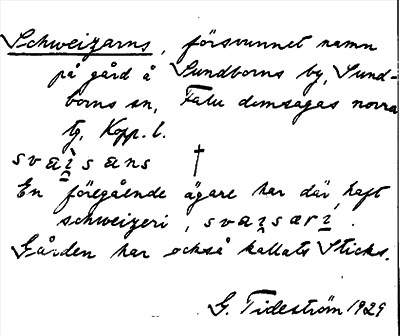 Schweizarns, försvunnet namn
på gård å Sundborns by, Sund-
borns sn, Falu domsagas norra
tg, Kopp. l.
svai̯sans †
En föregående ägare har där haft
schweizeri, svai̯sari.
Gården har också kallats Sticks.
G. Tideström 1929